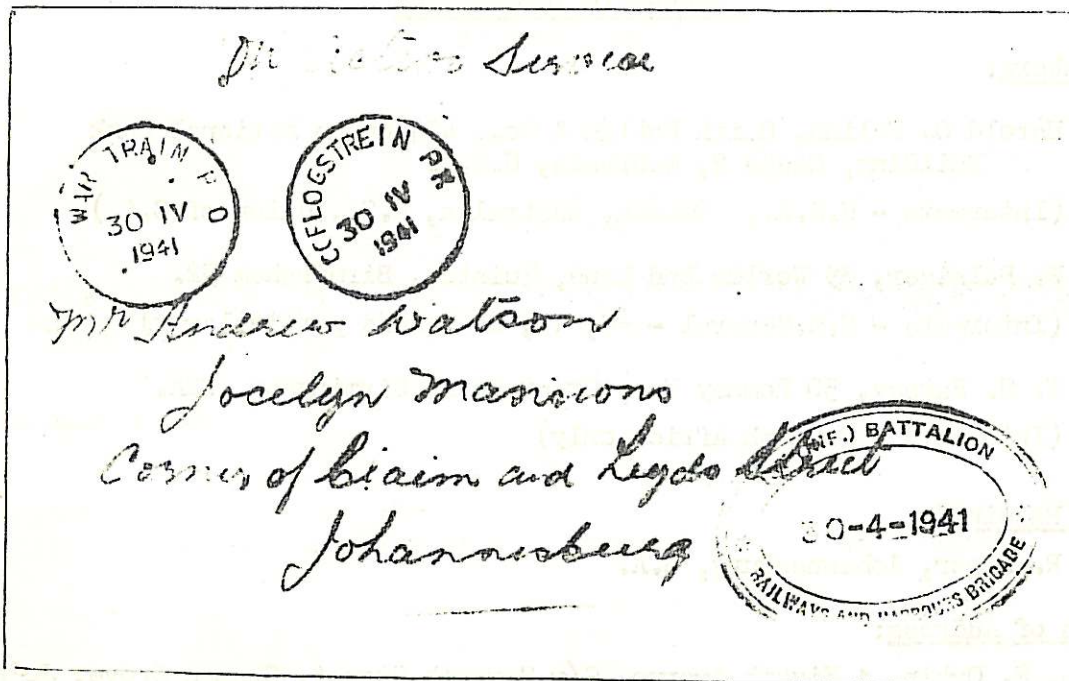 On Active Service
WAR TRAIN P O
30 IV
1941
OFLOGSTREIN PK
30 IV
1941
Mr Andrew Watson
Jocelyn Mansions
Corner of Claim and Leyds Street
Johannesburg
(INF.) BATTALION
30-4-1941
RAILWAYS AND HARBOURS BRIGADE